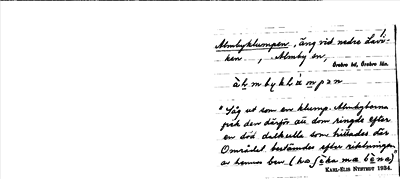 Almbyklumpen, äng vid nedre Lavi-
ken, Almby sn,
Örebro hd, Örebro län.
"Låg ut som en klump. Almbyborna
fick den därför att dom ringde efter
en död dalkulla som hittades där
Området bestämdes efter riktningen
av hennes ben
KARL-ELIS NYSTRÖM 1934.